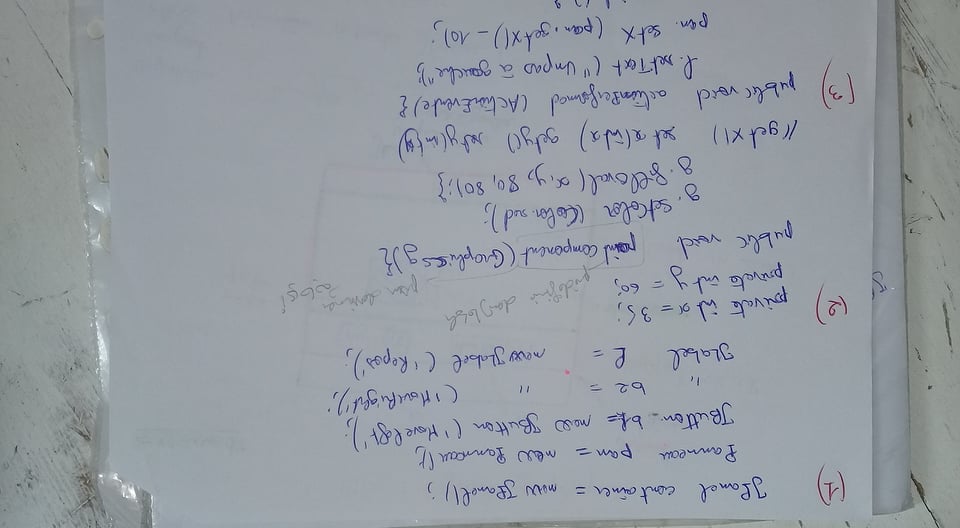 (1) JPanel container = new JPanel();
Panneau pan = new Panneau();
JButton b1 = new JButton ('MoveLeft');
" b2 = " ('MoveRight');
JLabel l = new JLabel ('Repos');
(2) private int x = 35;
private int y = 60;
prédéfinie
pour dessiner
public void paintComponent (Graphics g){
g. setColor (Color.red);
g. fillOval( x, y, 80, 80);}
//getX() set x(int x) gety() sety(int y)
(3) public void actionPerformed (ActionEvent e){
l. setText ("Un pas à gauche");
pan. setX (pan.getX() - 10);